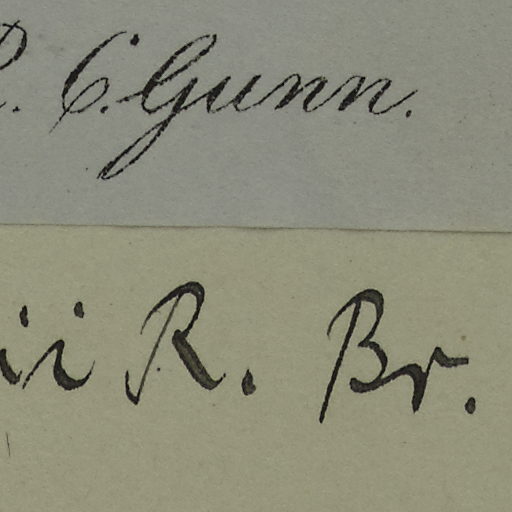 R. C. Gunn.
ii R. Br.